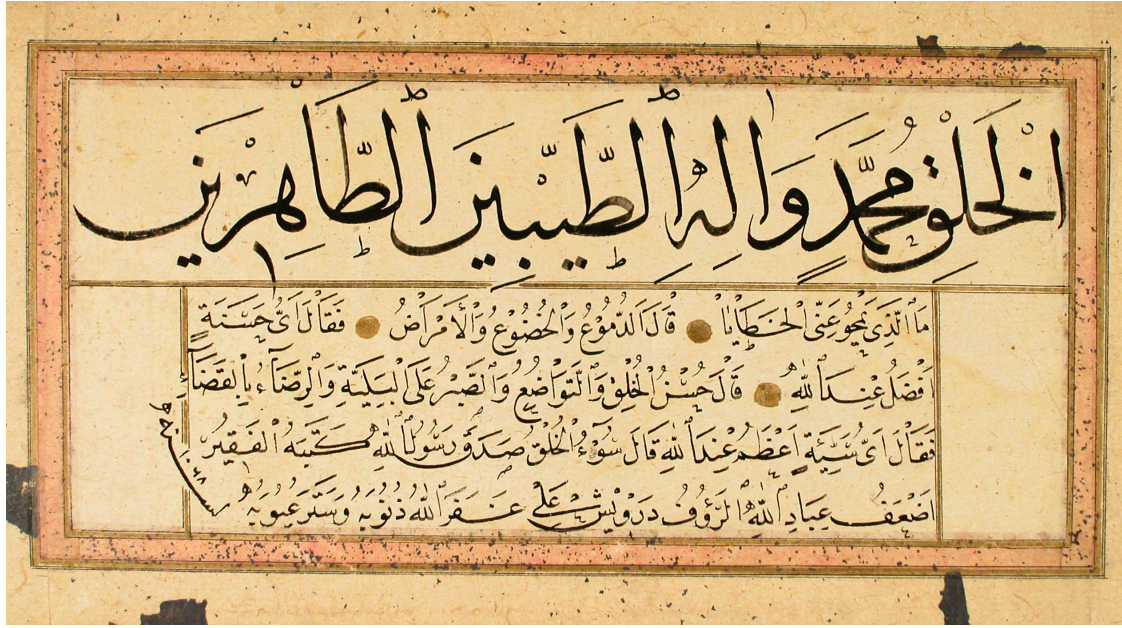 اَلْخَلْقِ مُحَمَّدٍ وَاٰلِهِ الطَّيِّبِينَ الطَّاهِرِينَ
مَا الَّذِي يَمْحُو عَنِّي الْخَطَايَا قَالَ الدُّمُوعُ وَالْخُضُوعُ وَالْأَمْرَاضُ فَقَالَ اَيُّ حَسَنَةٍ
اَفْضَلُ عِنْدَ اللّٰهِ قَالَ حُسْنُ الْخُلْقِ وَالتَّوَاضُعُ وَالصَّبْرُ عَلَى الْبَلِيَّةِ وَالرِّضَاءُ بِالْقَضَاءِ
فَقَالَ اَيُّ سَيِّئَةٍ اَعْظَمُ عِنْدَ اللّٰهِ قَالَ سُوْءُ الْخُلْقِ صَدَقَ رَسُولُ اللّٰهِ كَتَبَهُ الْفَقِيرُ
اَضْعَفُ عِبَادِ اللّٰهِ الرَّؤُوفِ دَرْوِيشْ عَلِي غَفَرَ اللّٰهُ ذُنُوبَهُ وَسَتَرَ عُيُوبَهُ
سنة ١٠٦٨